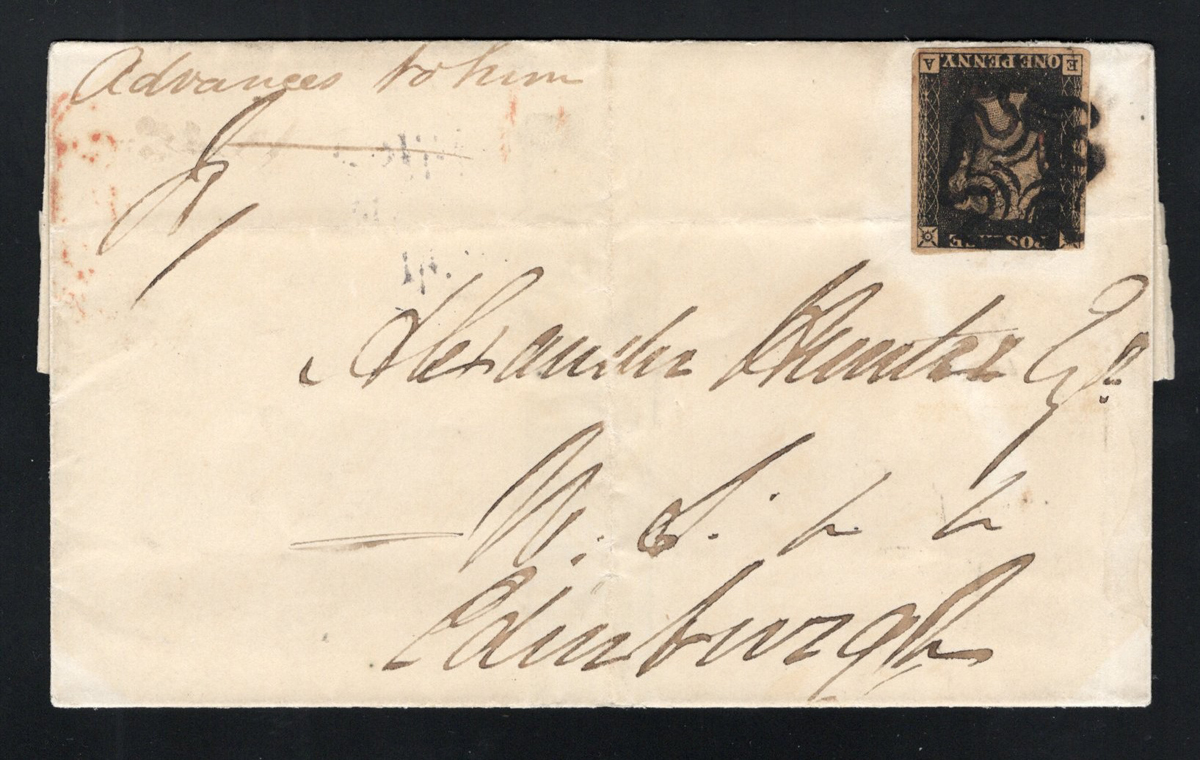 Advances to him
ONE PENNY.
A E
POSTAGE
Alexander Hunter Esqr.
W. S.
Edinburgh